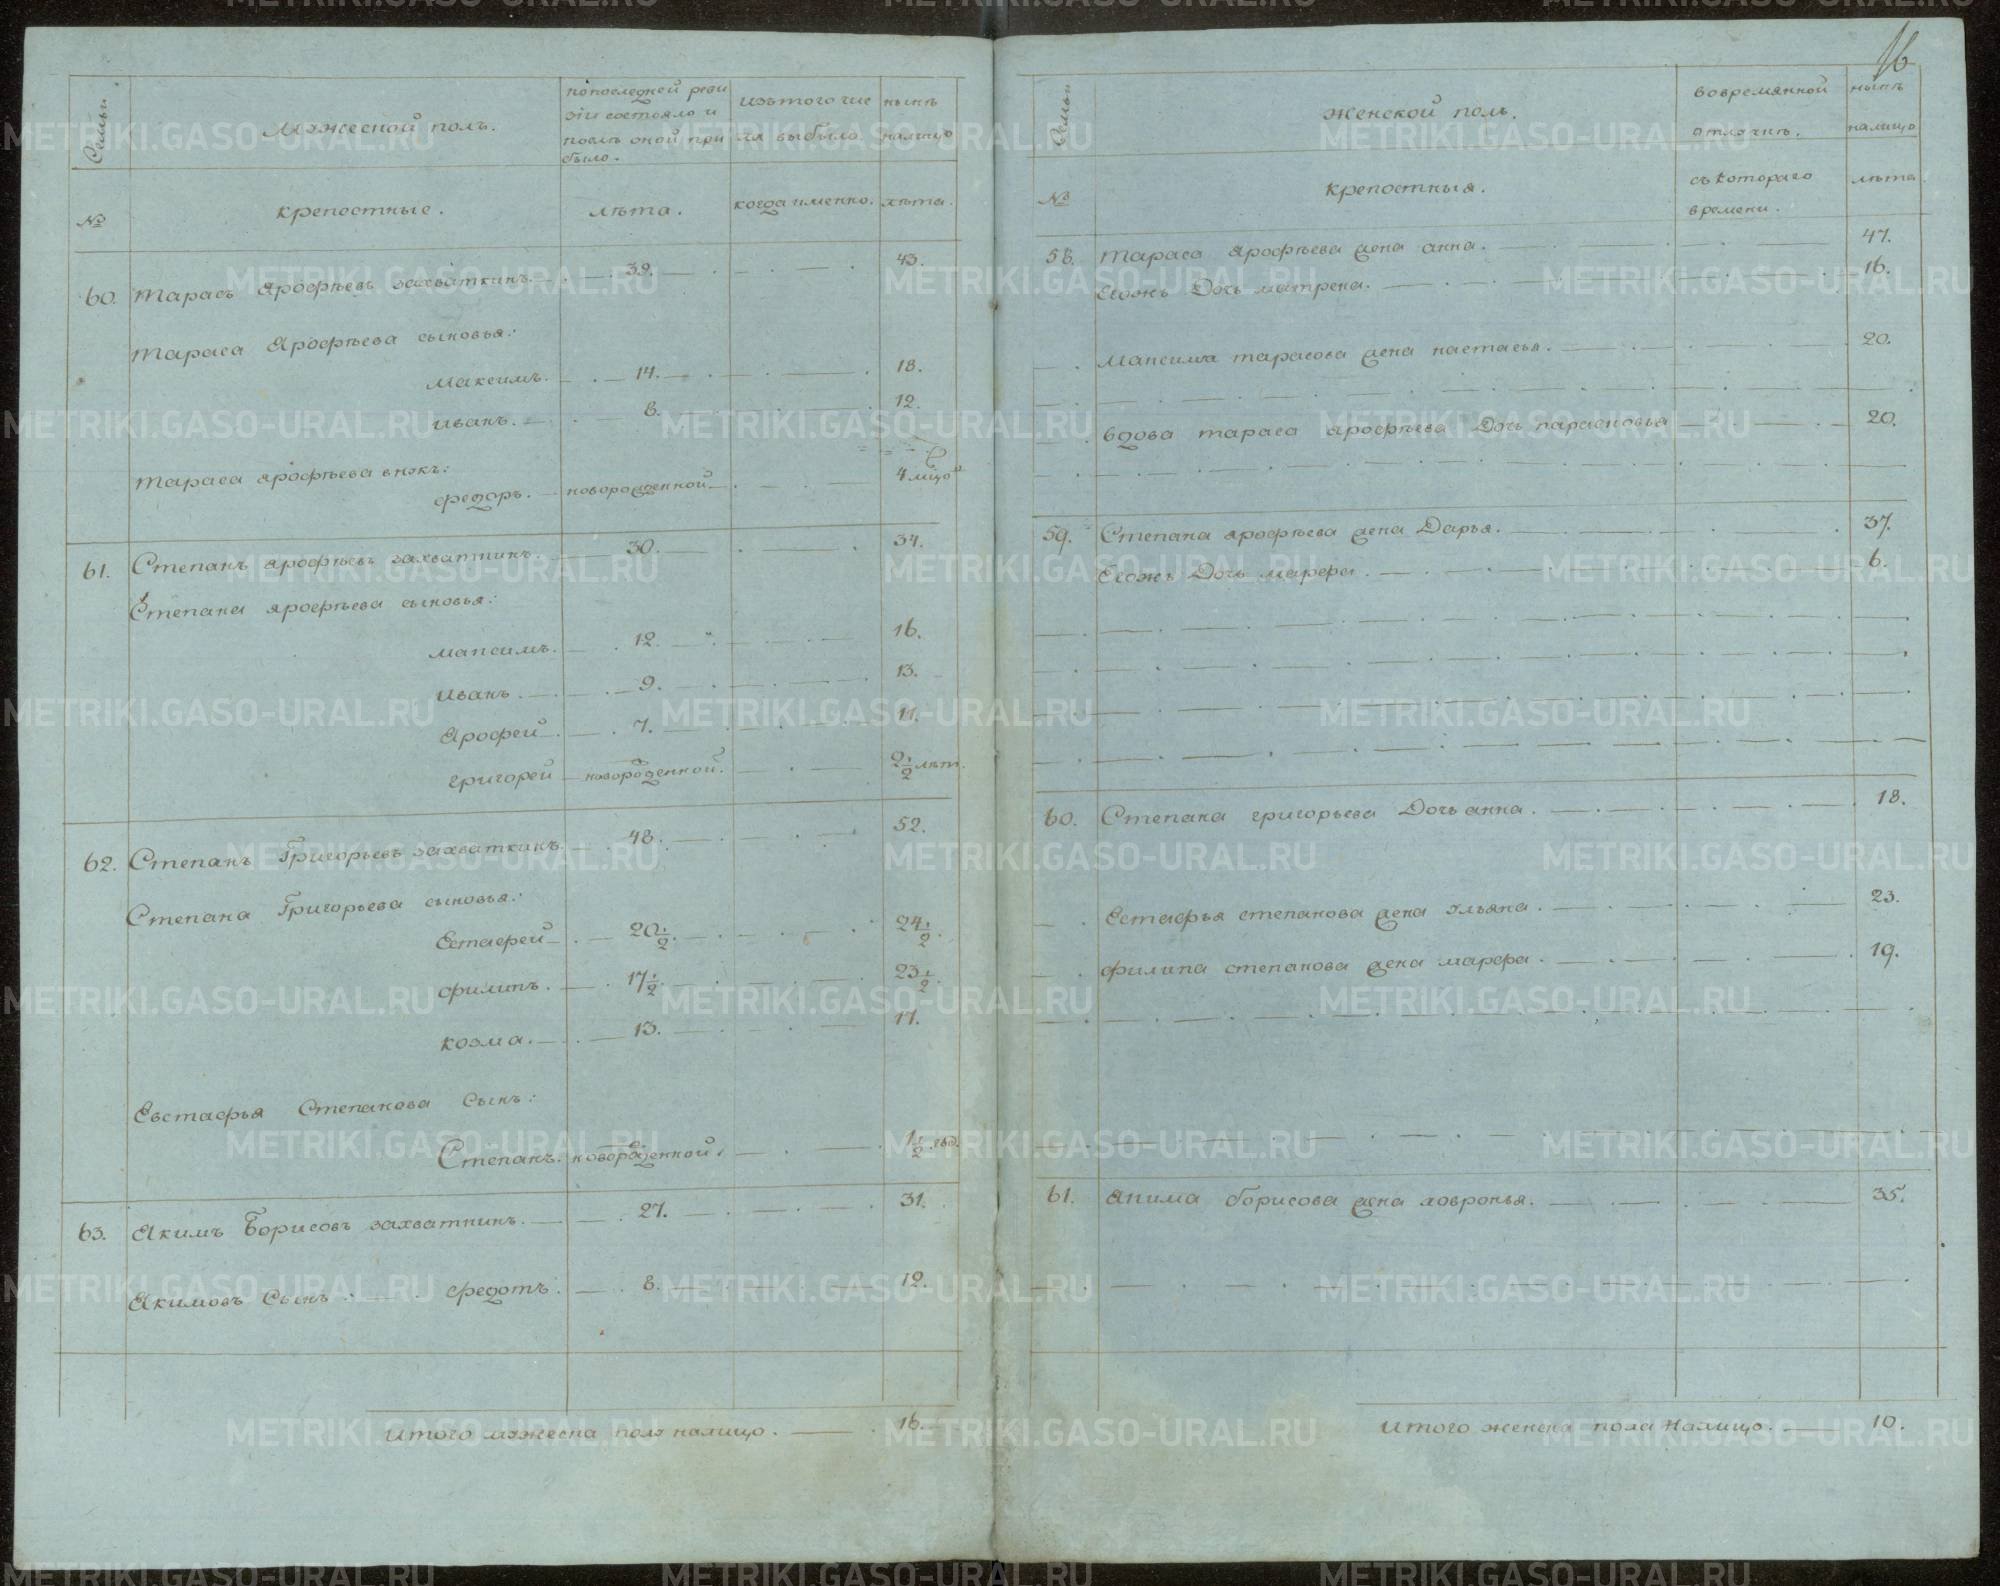 16
Семьи.
Мужеской полъ.
по последней реви
зіи состояло и
послѣ оной при
было.
изътого чис
ла выбыло.
нынѣ
налицо
№
крепостные.
лѣта.
когда именно.
лѣта.
60. Тарасъ Ярофѣевъ захваткинъ. 39. 43.
Тараса Ярофѣева сыновья:
максимъ. 14. 18.
иванъ. 8. 12.
Тараса ярофѣева внукъ:
федоръ. новорожденной 4
61. Степанъ ярофѣевъ захваткинъ. 30. 34.
Степана ярофѣева сыновья:
максимъ. 12. 16.
иванъ. 9. 13.
Ярофей. 7. 11.
григорей новорожденной. 2 1/2 лѣт.
62. Степанъ Григорьевъ захваткинъ. 48. 52.
Степана Григорьева сыновья:
Естафей 20 1/2. 24 1/2.
филипъ. 17 1/2. 23 1/2.
козма. 13. 17.
Евстафья Степанова Сынъ:
Степанъ. новорожденной. 1 1/2 год.
63. Якимъ Борисовъ захваткинъ. 27. 31.
Якимовъ Сынъ: федотъ. 8. 12.
Итого мужеска полу налицо. 16.
Семьи
Женской полъ.
вовремянной
отлучкѣ.
нынѣ
налицо
№
крепостныя.
съ котораго
времени.
лѣта.
58. Тараса ярофѣева жена анна. 47.
Егожъ Дочь матрена. 16.
Максима тарасова жена настасья. 20.
вдова тараса ярофѣева Дочь парасковья 20.
59. Степана ярофѣева жена Дарья. 37.
Егожъ Дочь марфа. 6.
60. Степана григорьева Дочь анна. 18.
Естафья степанова жена ульяна. 23.
филипа степанова жена марфа. 19.
61. Якима борисова жена ховронья. 35.
Итого женска пола налицо. 10.
METRIKI.GASO-URAL.RU